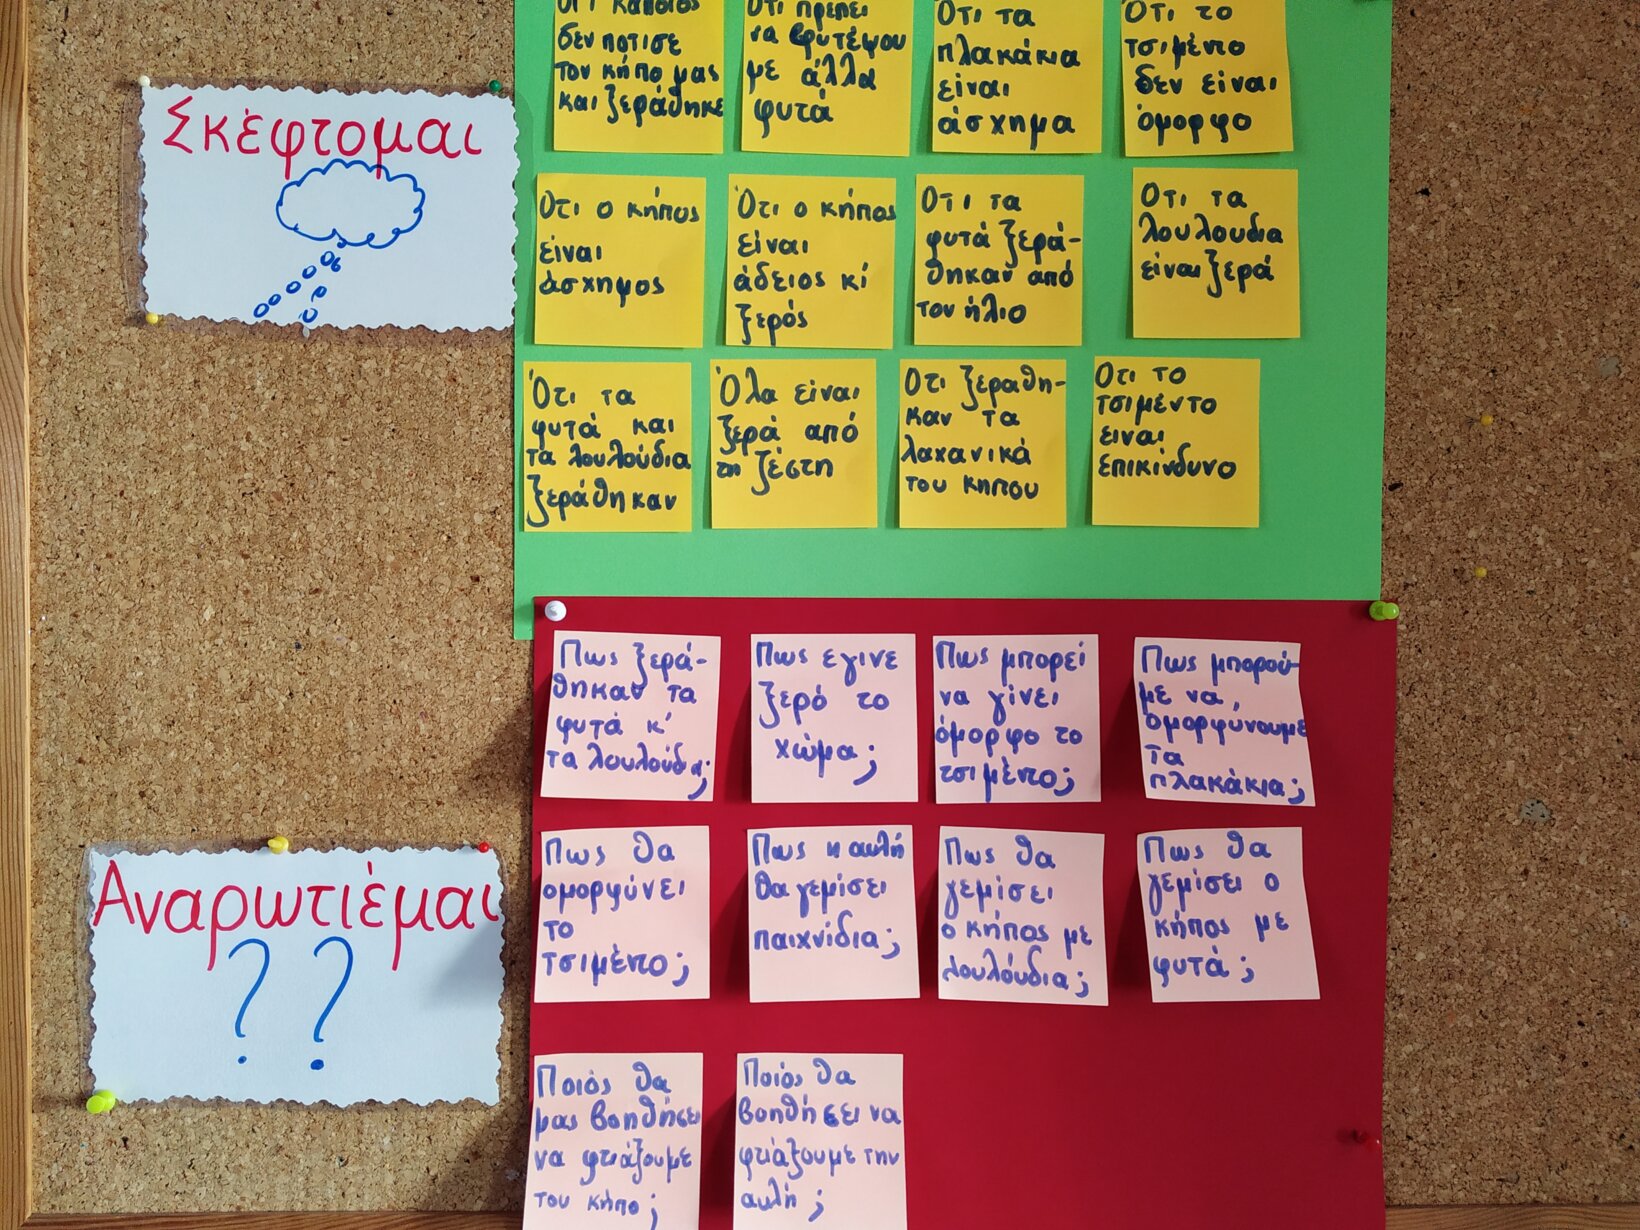 Σκέφτομαι
Ότι κάποιος
δεν πότισε
τον κήπο μας
και ξεράθηκε
Ότι πρέπει
να φυτέψου
με άλλα
φυτά
Ότι τα
πλακάκια
είναι
άσχημα
Ότι το
τσιμέντο
δεν είναι
όμορφο
Ότι ο κήπος
είναι
άσχημος
Ότι ο κήπος
είναι
άδειος κί
ξερός
Οτι τα
φυτά ξερά-
θηκαν από
τον ήλιο
Οτι τα
λουλουδια
είναι ξερά
Ότι τα
φυτά και
τα λουλούδια
ξεράθηκαν
Όλα είναι
ξερά από
τη ζέστη
Οτι ξεραθη-
καν τα
λαχανικά
του κηπου
Οτι το
τσιμέντο
ειναι
επικίνδυνο
Αναρωτιέμαι
? ?
Πως ξερά-
θηκαν τα
φυτά κ'
τα λουλούδια;
Πως εγινε
ξερό το
χώμα;
Πως μπορεί
να γίνει
όμορφο το
τσιμέντο;
Πως μπορού-
με να
ομορφύνουμε
τα
πλακάκια;
Πως θα
ομορφύνει
το
τσιμέντο;
Πως η αυλή
θα γεμίσει
παιχνίδια;
Πως θα
γεμίσει
ο κήπος με
λουλούδια;
Πως θα
γεμίσει ο
κήπος με
φυτά;
Ποιός θα
μας βοηθήσει
να φτιάξουμε
τον κήπο;
Ποιός θα
βοηθήσει να
φτιάξουμε την
αυλή;